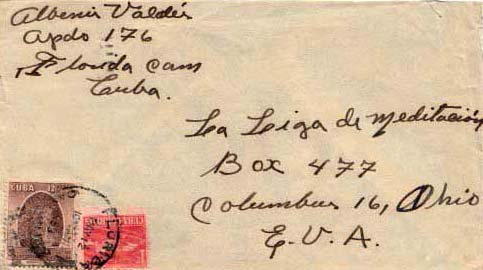 Albenis Valdés
Apdo 176
Florida Cam
Cuba.
La Liga de Meditación
Box 477
Columbus 16, Ohio
E.U.A.
CUBA 12